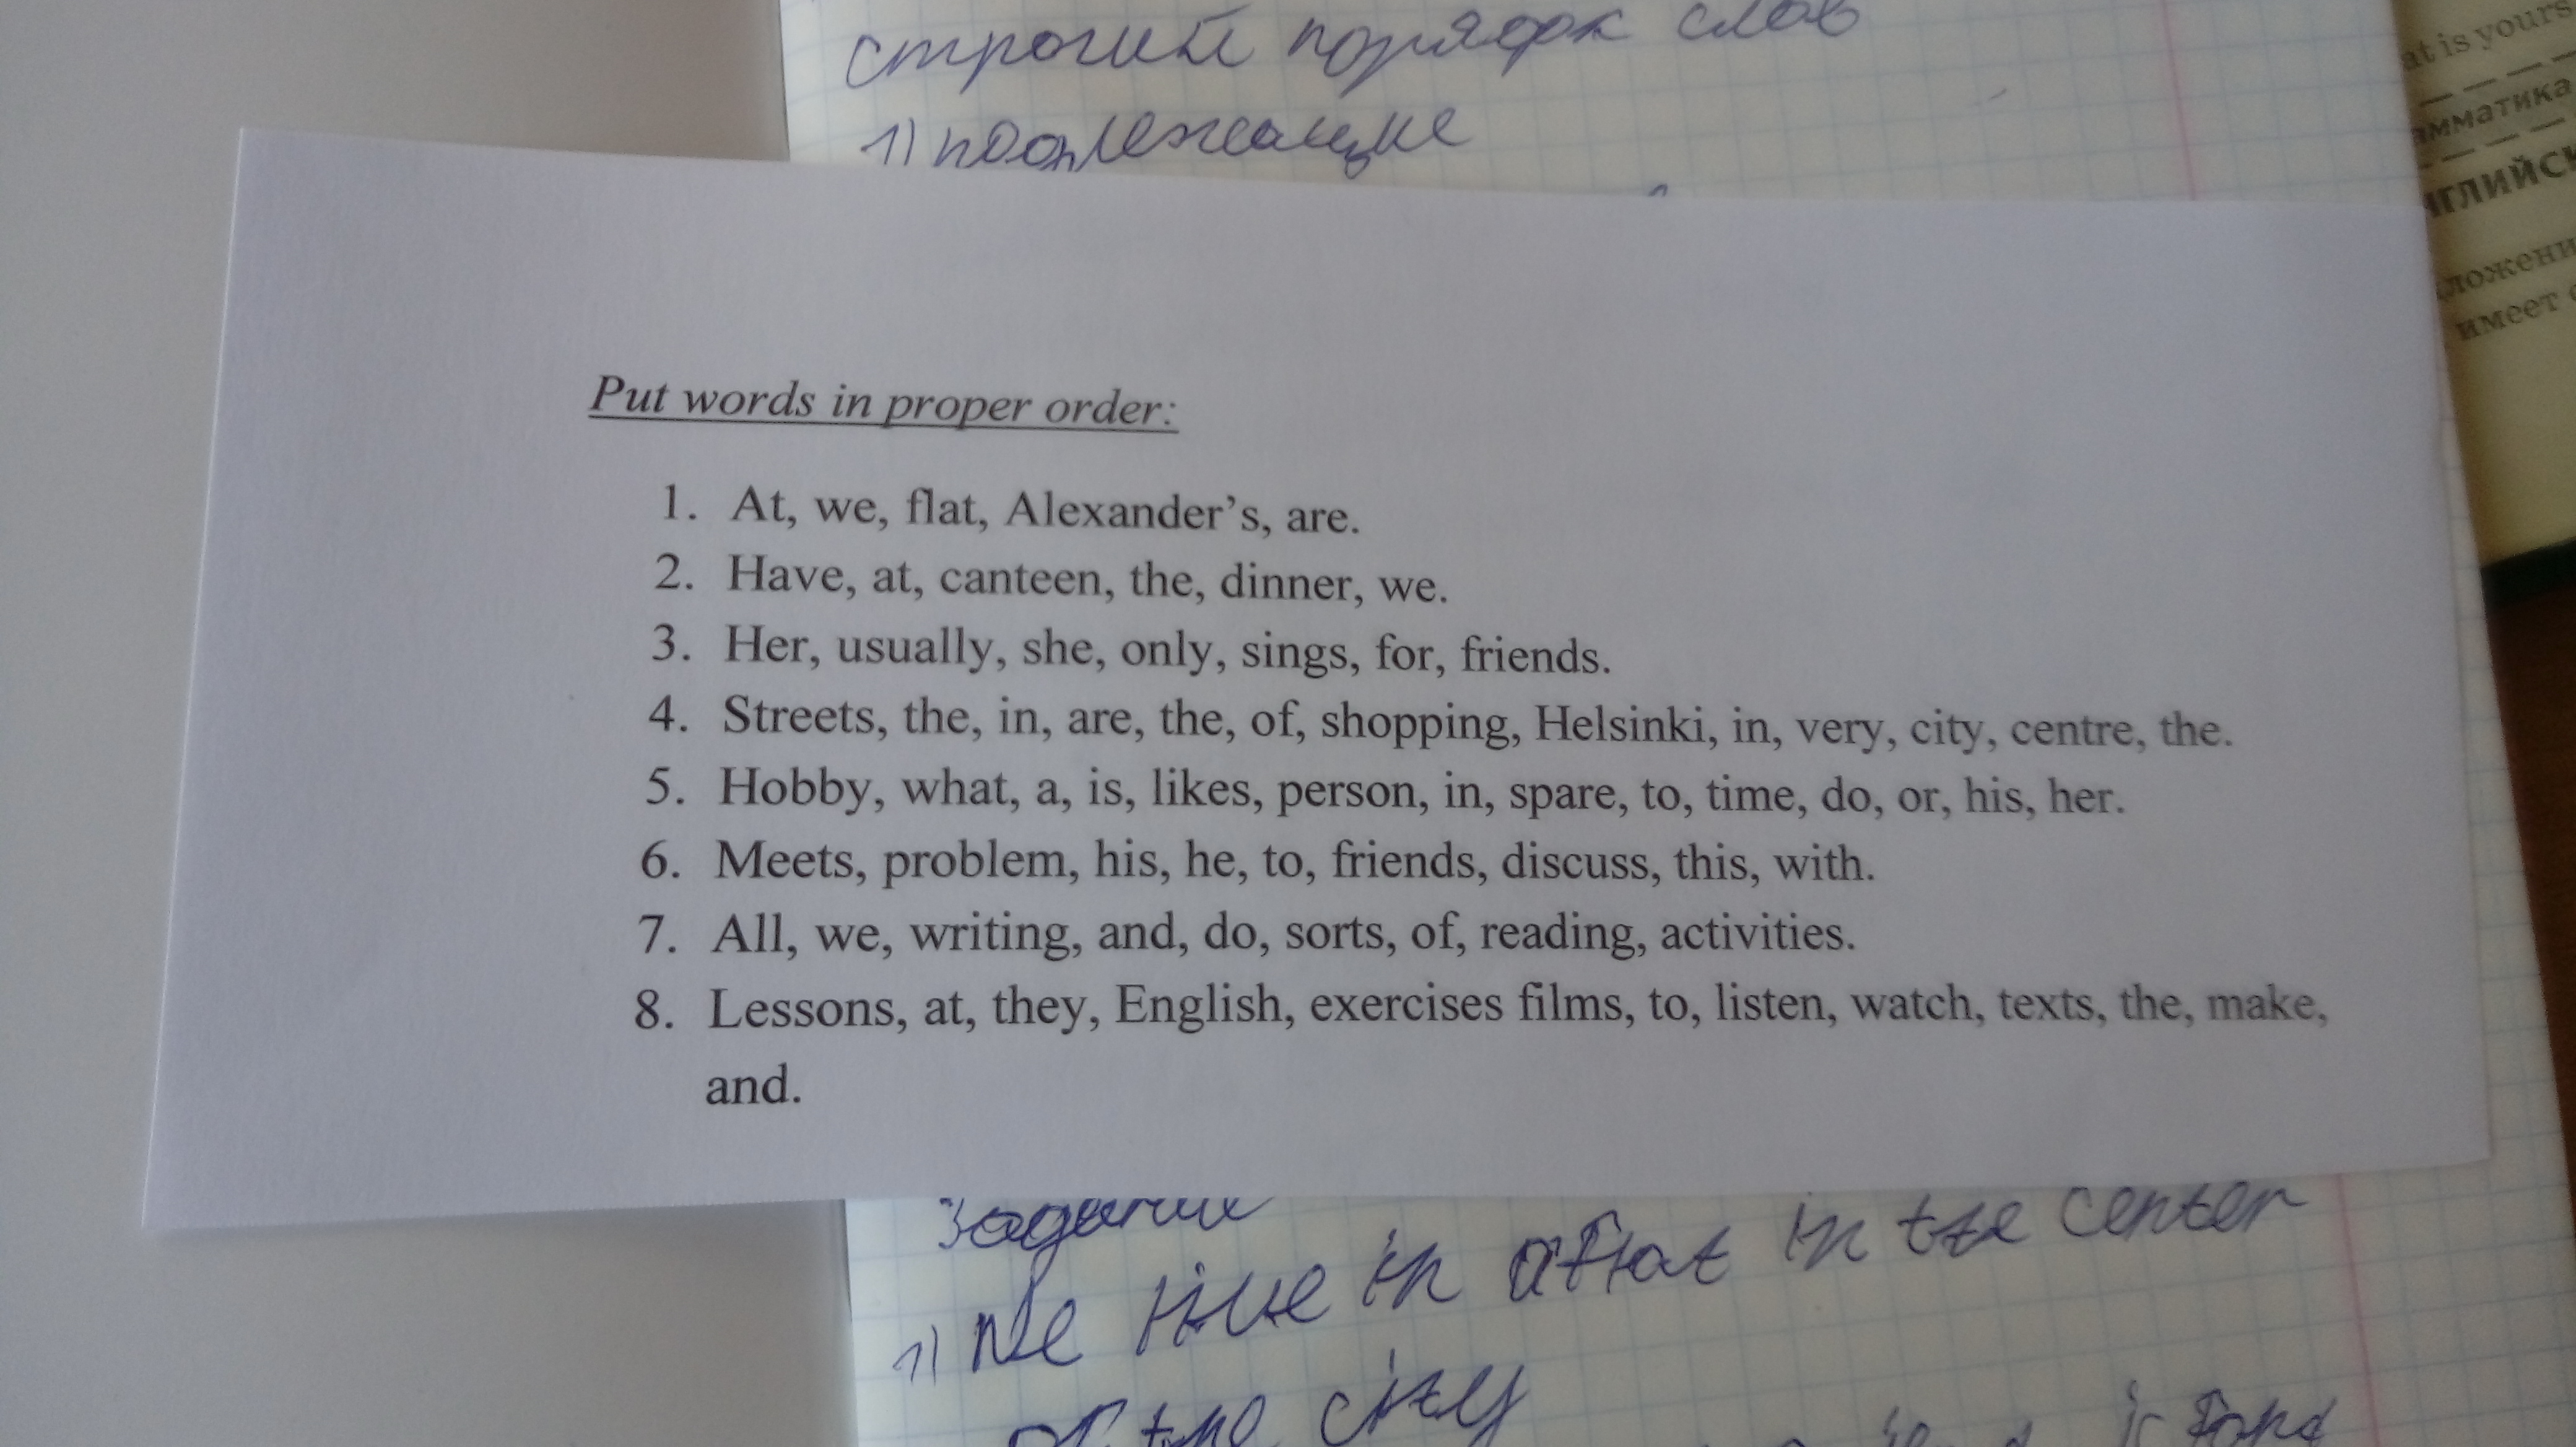 строгий порядок слов
1) подлежащие
at is yours
амматика
нглийск
ложени
имеет
Put words in proper order:
1. At, we, flat, Alexander's, are.
2. Have, at, canteen, the, dinner, we.
3. Her, usually, she, only, sings, for, friends.
4. Streets, the, in, are, the, of, shopping, Helsinki, in, very, city, centre, the.
5. Hobby, what, a, is, likes, person, in, spare, to, time, do, or, his, her.
6. Meets, problem, his, he, to, friends, discuss, this, with.
7. All, we, writing, and, do, sorts, of, reading, activities.
8. Lessons, at, they, English, exercises films, to, listen, watch, texts, the, make,
and.
Задание
1) We live in a flat in the center
of the city
is fond